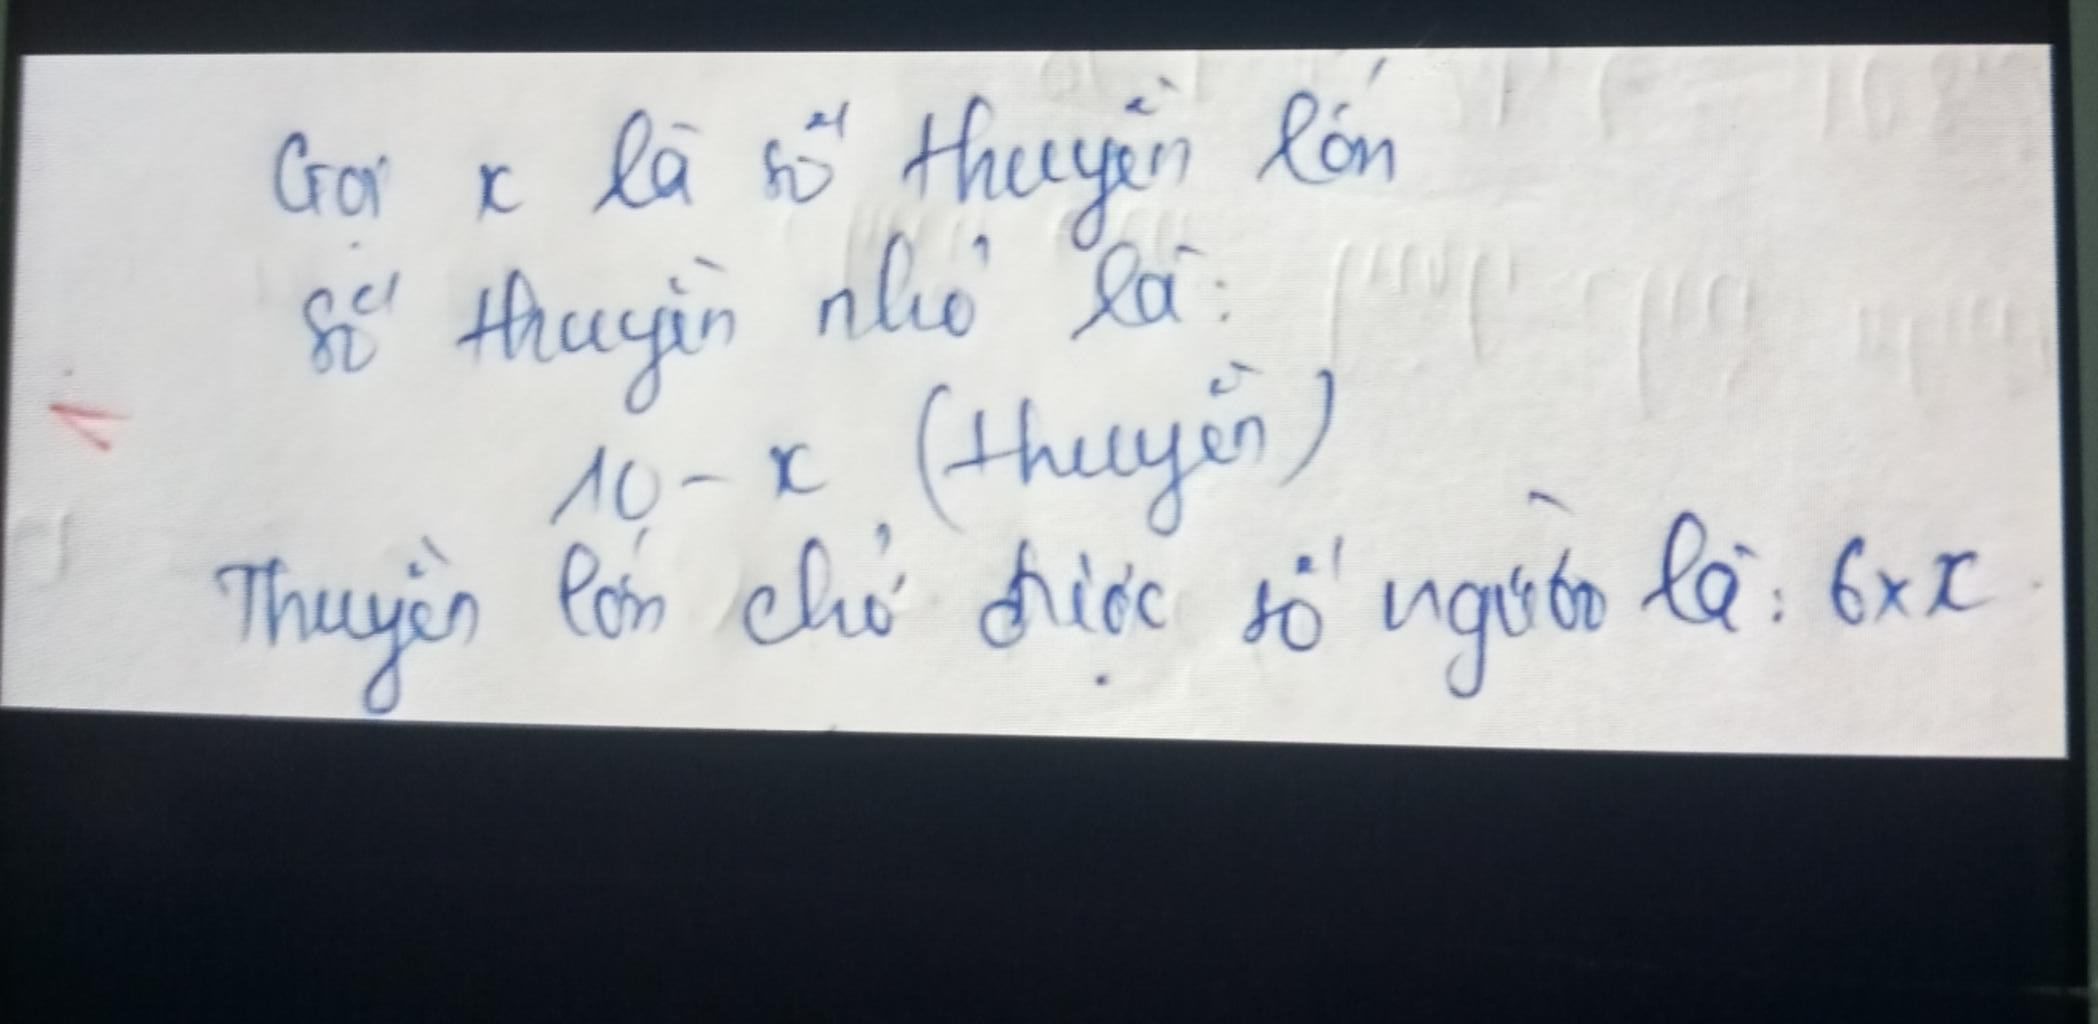 Gọi x là số thuyền lớn
Số thuyền nhỏ là:
10 - x (thuyền)
Thuyền lớn chở được số người là: 6 x x